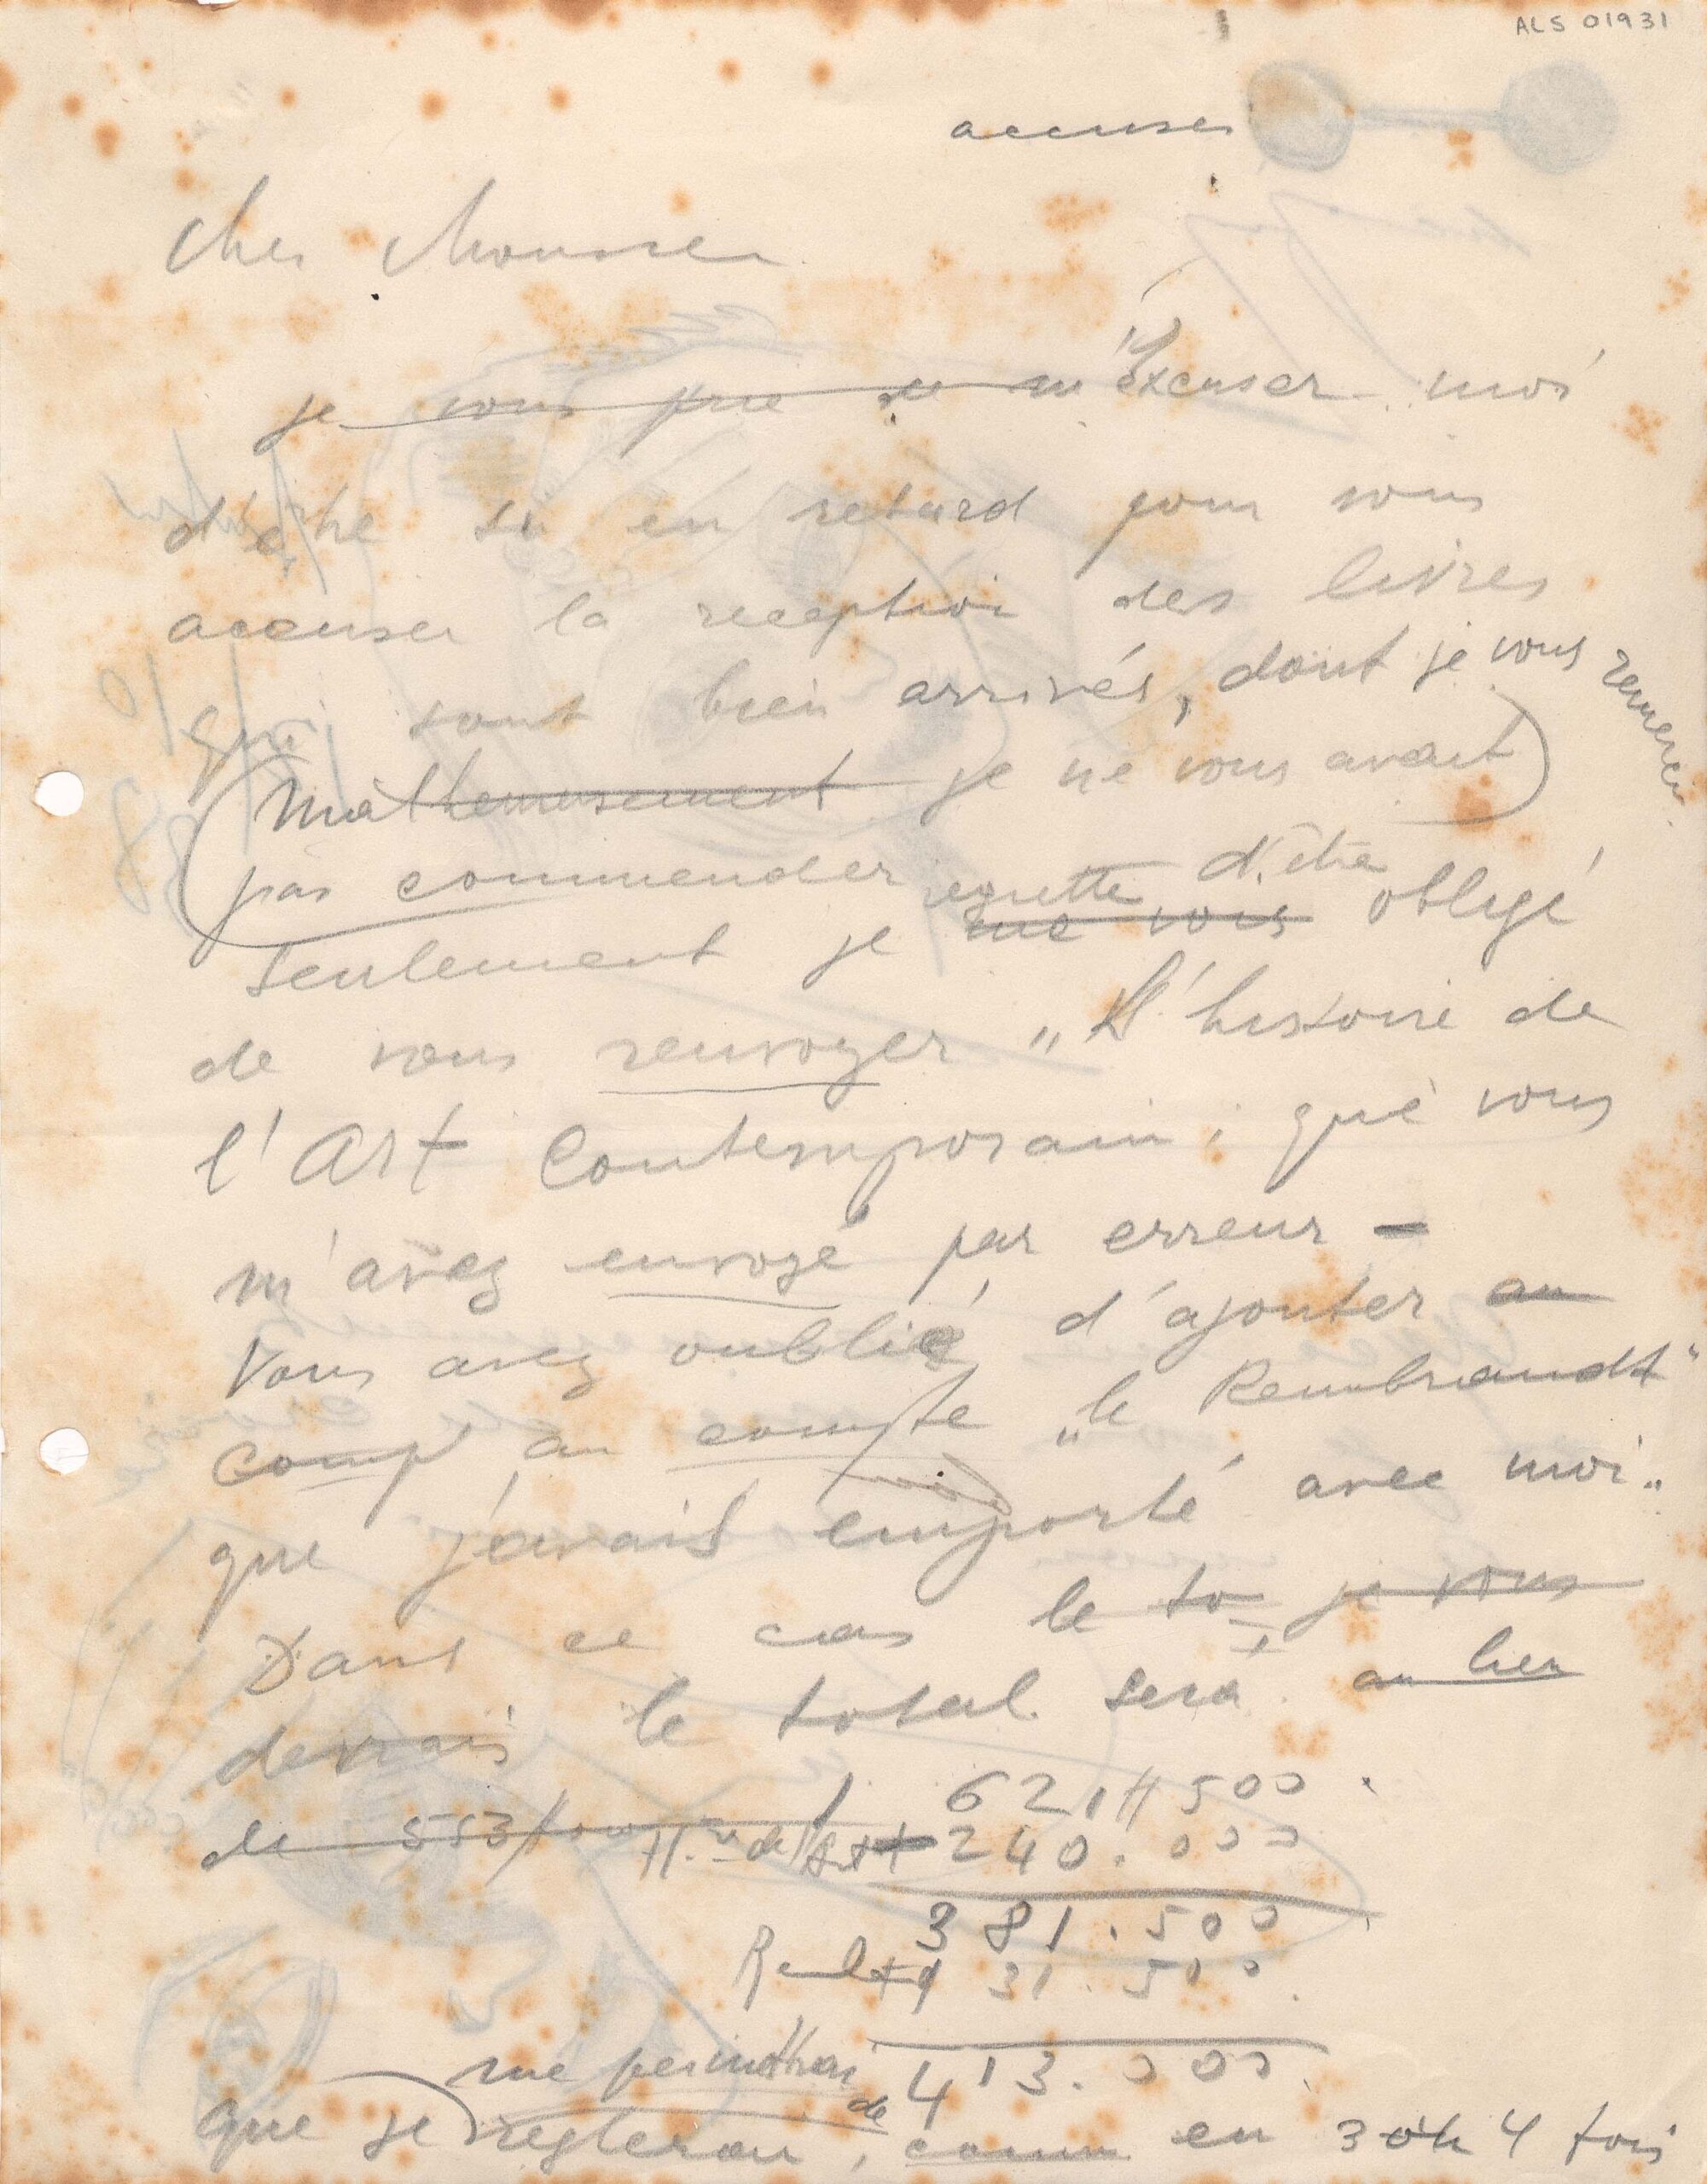 ALS 01931
accuser
Cher Monsieur
je vous prie de m'Excuser moi
d'être si en retard pour vous
accuser la reception des livres
qui sont bien arrivés, dont je vous remercie
(Malheureusement je ne vous avait)
pas commender regrette d'être
seulement je me vois obligé
de vous renvoyer „L'histoire de
l'Art Contemporain; que vous
m'avez envoyé par erreur -
Vous avez oublié d'ajouter au
comp au compte „le Rembrandt"
que j'avais emporté avec moi..
Dans ce cas le to je vous
devrais le total sera au lieu
621 500
de 553 H.re de l'Art 240.000
381.500
31.500
me permettrez 413.000
que je reglerau, de comm en 3 où 4 fois